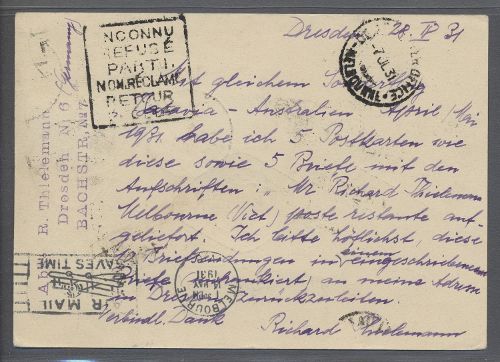 Dresden, 28. IV 31
INCONNU
REFUSÉ
PARTI
NON RÉCLAMÉ
RETOUR
Mit gleichem
Batavia - Australien April/Mai
1931 habe ich 5 Postkarten wie
diese sowie 5 Briefe mit den
Aufschriften: "Mr Richard Thielemann
Melbourne Vict) poste restante auf-
geliefert. Ich bitte höflichst, diese
10 Briefsendungen in einem (eingeschriebenem
Briefe unfrankiert) an meine Adresse
in Dresden zurückzuleiten.
Verbindl. Dank
Richard Thielemann
Abs. R. Thielemann
Dresden N. 6 Germany
BACHSTR.
MELBOURNE
1931
AIR MAIL
SAVES TIME
MELBOURNE